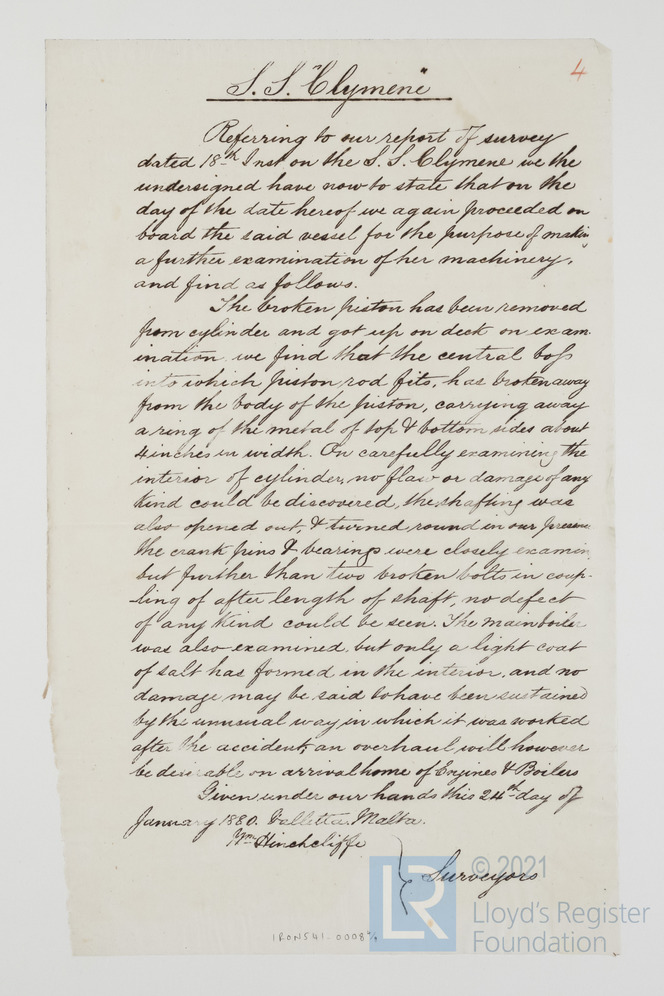 4
S. S. "Clymene"
Referring to our report of survey
dated 18th Inst on the S. S. Clymene we the
undersigned have now to state that on the
day of the date hereof we again proceeded on
board the said vessel for the purpose of makin
a further examination of her machinery,
and find as follows.
The broken piston has been removed
from cylinder and got up on deck on exam-
ination we find that the central boss
into which piston rod fits, has broken away
from the body of the piston, carrying away
a ring of the metal of top & bottom sides about
4 inches in width. On carefully examining the
interior of cylinder, no flaw or damage of any
kind could be discovered, the shafting was
also opened out, & turned round in our presence
the crank pins & bearings were closely examin
but further than two broken bolts in coup-
ling of after length of shaft, no defect
of any kind could be seen. The main boiler
was also examined, but only a light coat
of salt has formed in the interior, and no
damage may be said to have been sustained
by the unusual way in which it was worked
after the accident, an overhaul will however
be desirable on arrival home of Engines & Boilers
Given under our hands this 24th day of
January 1880. Valletta. Malta.
Wm Hinchcliffe
Surveyors
IRON541-0008
LR
© 2021
Lloyd's Register
Foundation